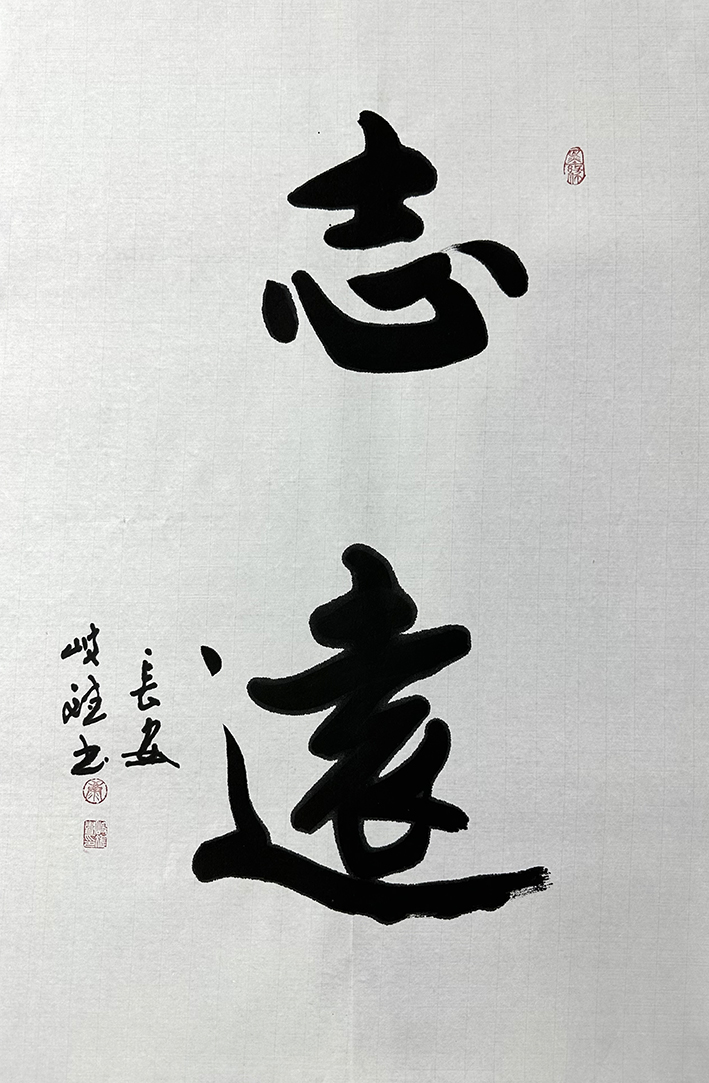 志
遠
長安
岐雄書